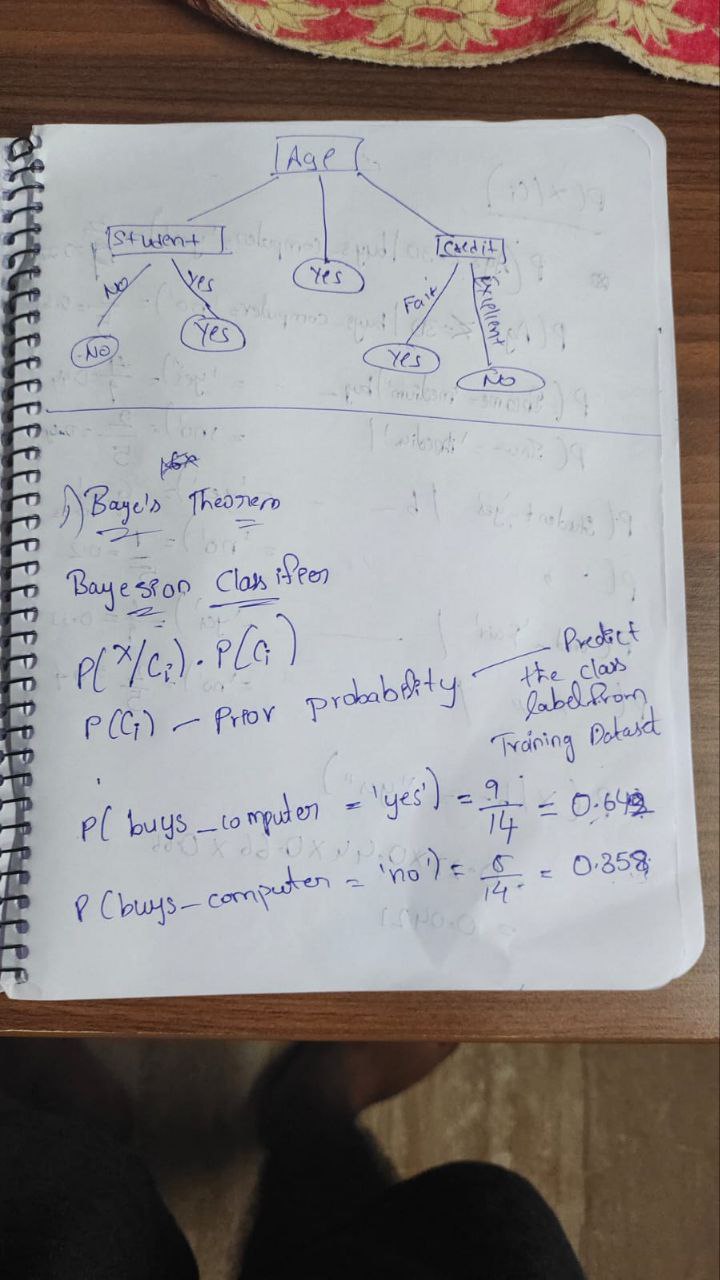 Age
Student
Credit
No
Yes
Yes
Fair
Excellent
No
Yes
Yes
No
1) Baye's Theorem
Bayesion Classifier
P(X/Ci) . P(Ci)
P(Ci) – Prior probability
Predict
the class
label from
Training Dataset
P( buys_computer = 'yes') = 9/14 = 0.642
P(buys_computer = 'no') = 5/14 = 0.358